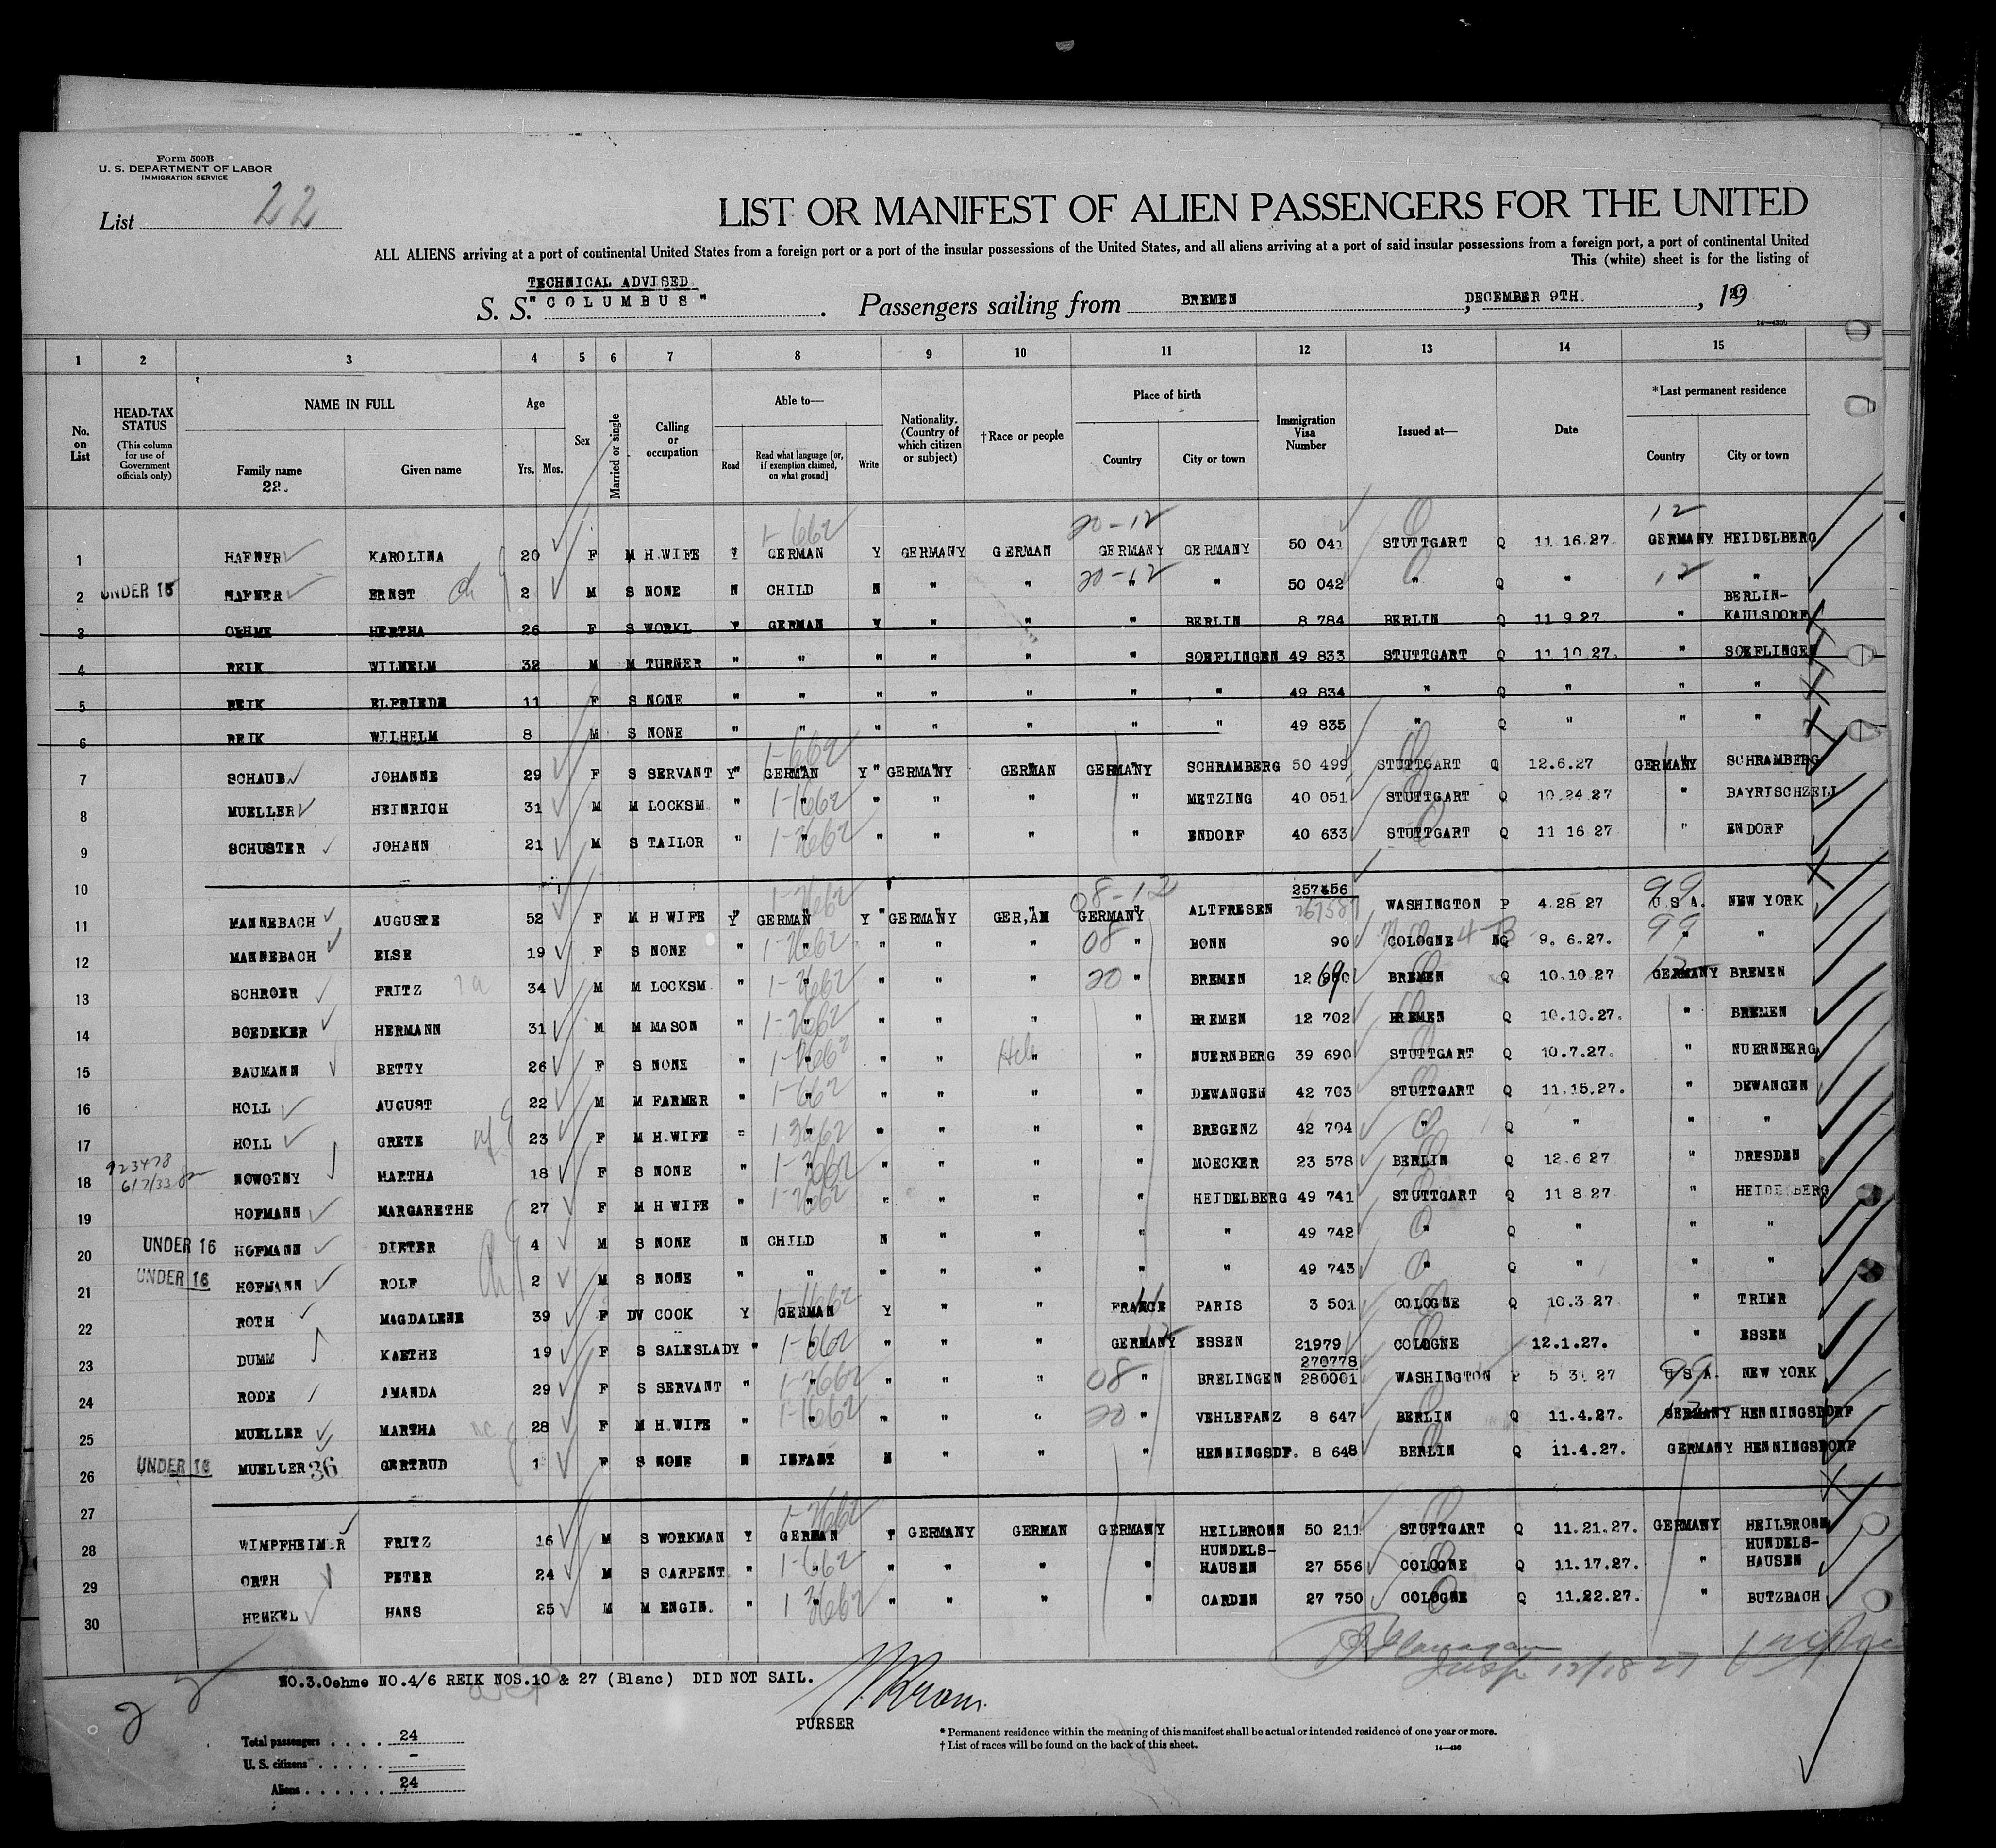 Form 500B
U. S. DEPARTMENT OF LABOR
IMMIGRATION SERVICE
List 22
LIST OR MANIFEST OF ALIEN PASSENGERS FOR THE UNITED
ALL ALIENS arriving at a port of continental United States from a foreign port or a port of the insular possessions of the United States, and all aliens arriving at a port of said insular possessions from a foreign port, a port of continental United
This (white) sheet is for the listing of
TECHNICAL ADVISED
S. S. "COLUMBUS". Passengers sailing from BREMEN, DECEMBER 9TH., 1927
14—430b
1 2 3 4 5 6 7 8 9 10 11 12 13 14 15
No. on List HEAD-TAX STATUS (This column for use of Government officials only) NAME IN FULL Family name Given name Age Yrs. Mos. Sex Married or single Calling or occupation Able to— Read Read what language [or, if exemption claimed, on what ground] Write Nationality. (Country of which citizen or subject) †Race or people Place of birth Country City or town Immigration Visa Number Issued at— Date *Last permanent residence Country City or town
22.
1-662 20-12 12
1 HAFNER KAROLINA 20 F M H.WIFE Y GERMAN Y GERMANY GERMAN GERMANY GERMANY 50 041 STUTTGART Q 11.16.27. GERMANY HEIDELBERG
20-12 12
2 UNDER 16 HAFNER ERNST ch 2 M S NONE N CHILD N " " " 50 042 " Q " " "
3 OEHME HERTHA 26 F S WORKL Y GERMAN Y " " " BERLIN 8 784 BERLIN Q 11 9 27 " BERLIN-KAULSDORF
4 REIK WILHELM 32 M M TURNER " " " " " " SOEFLINGEN 49 833 STUTTGART Q 11.10.27. " SOEFLINGEN
5 REIK ELFRIEDE 11 F S NONE " " " " " " " 49 834 " Q " " "
6 REIK WILHELM 8 M S NONE " " " " " " " 49 835 " Q " " "
1-662
7 SCHAUB JOHANNE 29 F S SERVANT Y" GERMAN Y" GERMANY GERMAN GERMANY SCHRAMBERG 50 499 STUTTGART Q 12.6.27 GERMANY SCHRAMBERG
8 MUELLER HEINRICH 31 M M LOCKSM. " 1-1662 " " " " METZING 40 051 STUTTGART Q 10.24.27 " BAYRISCHZELL
9 SCHUSTER JOHANN 21 M S TAILOR " 1-2662 " " " " ENDORF 40 633 STUTTGART Q 11 16 27 " ENDORF
10
1-2662 08-12 257456 99
11 MANNEBACH AUGUSTE 52 F M H WIFE Y GERMAN Y "GERMANY GER,AN GERMANY ALTFRESEN WASHINGTON P 4.28.27 U S A. NEW YORK
12 MANNEBACH ELSE 19 F S NONE " 1-2662 " " " 08 " BONN 90 COLOGNE NQ 9. 6.27. 99 " "
13 SCHROER FRITZ 34 M M LOCKSM " 1-2662 " " " 20 " BREMEN BREMEN Q 10.10.27 GERMANY BREMEN
14 BOEDEKER HERMANN 31 M M MASON " 1-2662 " " " " BREMEN 12 702 BREMEN Q 10.10.27. " BREMEN
15 BAUMANN BETTY 26 F S NONE " 1-2662 " " Heb " BREMEN NUERNBERG 39 690 STUTTGART Q 10.7.27. " NUERNBERG
16 HOLL AUGUST 22 M M FARMER " 1-662 " " " " DEWANGEN 42 703 STUTTGART Q 11.15.27. " DEWANGEN
17 HOLL GRETE 23 F M H.WIFE " 1-2662 " " " " BREGENZ 42 704 " Q " " "
18 923478 617/33 NOWOTNY MARTHA 18 F S NONE " 1-2662 " " " " MOECKER 23 578 BERLIN Q 12.6 27 " DRESDEN
19 HOFMANN MARGARETHE 27 F M H WIFE " 1-2662 " " " " HEIDELBERG 49 741 STUTTGART Q 11 8.27 " HEIDELBERG
20 UNDER 16 HOFMANN DIETER 4 M S NONE N CHILD N " " " " 49 742 " Q " " "
21 UNDER 16 HOFMANN ROLF ch 2 M S NONE " " " " " " " 49 743 " Q " " "
22 ROTH MAGDALENE 39 F DV COOK Y GERMAN Y " " FRANCE PARIS 3 501 COLOGNE Q 10.3 27 " TRIER
23 DUMM KAETHE 19 F S SALESLADY " 1-662 " " " GERMANY ESSEN 21979 COLOGNE 12.1.27. " ESSEN
270778
24 RODE AMANDA 29 F S SERVANT " 1-2662 " " " 08 " BRELINGEN 280001 WASHINGTON P 5 3. 27 99 U S A. NEW YORK
25 MUELLER MARTHA 28 F M H.WIFE " 1-1662 " " " 20 " VEHLEFANZ 8 647 BERLIN Q 11.4.27. GERMANY HENNINGSDORF
26 UNDER 16 MUELLER 36 GERTRUD 1 F S NONE N INFANT N " " " HENNINGSDF. 8 648 BERLIN Q 11.4.27. GERMANY HENNINGSDORF
27
1-2662
28 WIMPFHEIMER FRITZ 16 M S WORKMAN Y GERMAN Y GERMANY GERMAN GERMANY HEILBRONN 50 211 STUTTGART Q 11.21.27. GERMANY HEILBRONN
29 ORTH PETER 24 M S CARPENT. " 1-662 " " " " HUNDELS-HAUSEN 27 556 COLOGNE Q 11.17.27. " HUNDELS-HAUSEN
30 HENKEL HANS 25 M M ENGIN. " 1 2662 " " " " CARDEN 27 750 COLOGNE Q 11.22.27. " BUTZBACH
Insp 12/18 27
NO.3.Oehme NO.4/6 REIK NOS.10 & 27 (Blanc) DID NOT SAIL.
22
PURSER
* Permanent residence within the meaning of this manifest shall be actual or intended residence of one year or more.
† List of races will be found on the back of this sheet.
14—430
Total passengers . . . . 24
U. S. citizens . . . . . –
Aliens . . . . . . 24